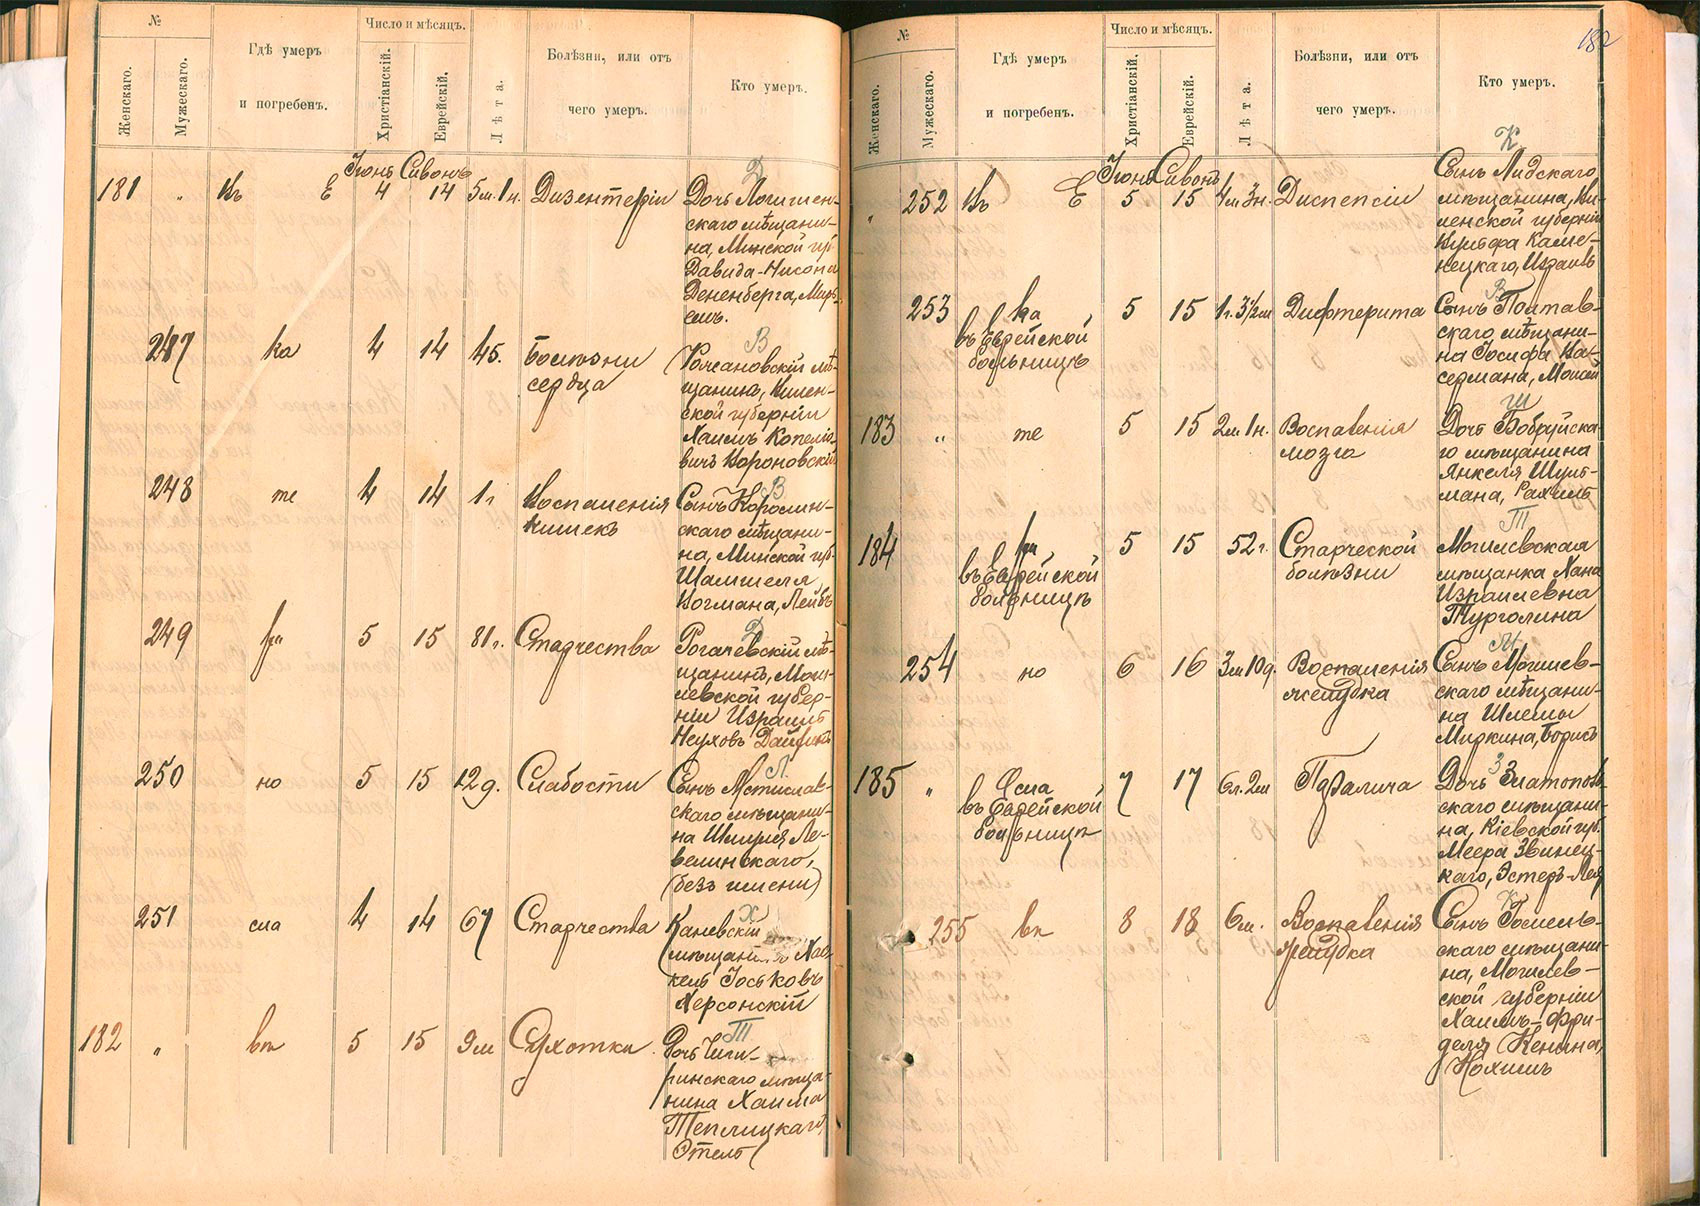 №
Женскаго.
Мужескаго.
Гдѣ умеръ
и погребенъ.
Число и мѣсяцъ.
Христіанскій.
Еврейскій.
Лѣта.
Болѣзни, или отъ
чего умеръ.
Кто умеръ.
Іюнь Сивонъ
Д
181 " Въ Е 4 14 5м. 1н. Дизентеріи Дочь Логишен-
скаго мѣщани-
на, Минской гу.
Давида-Нисона
Дененберга, Мирь-
емъ.
В
247 ка 4 14 45. Болѣзни
сердца
мѣ-
щанинъ, Вилен-
ской губерніи
Хаимъ Копелѣ-
вичъ Вороновскій
В
248 те 4 14 1г Воспаленія
кишекъ
Сынъ Королин-
скаго мѣщани-
на, Минской гу.
Шамшеля
Вогмана, Лейбъ
Д
249 ри 5 15 81г. Старчества Рогачевскій мѣ-
щанинъ, Моги-
левской губер-
ніи Израиль
Неуховъ
Л.
250 но 5 15 12д. Слабости Сынъ Мстислав-
скаго мѣщани-
на Шмуля Ле-
велинскаго,
(безъ имени)
Х
251 сла 4 14 67 Старчества Каневскій
мѣщанинъ Хас-
кель Іоськовъ
Херсонскій
Т
182 " вп 5 15 9м Сухотки Дочь Чиги-
ринскаго мѣща-
нина Хаима
Теплицкаго,
Этель
182
№
Женскаго.
Мужескаго.
Гдѣ умеръ
и погребенъ.
Число и мѣсяцъ.
Христіанскій.
Еврейскій.
Лѣта.
Болѣзни, или отъ
чего умеръ.
Кто умеръ.
К
Іюнь Сивонъ
Сынъ Лидскаго
" 252 Въ Е 5 15 4м 3н. Диспепсіи мѣщанина, Ви-
ленской губерніи
Вульфа Каме-
нецкаго, Израиль
В
253 ка 5 15 1г. 3½м Дифтерита Сынъ Полтав-
въ Еврейской
больницѣ
скаго мѣщани-
на Іосифа Ва-
сермана, Моисей
Ш
183 " те 5 15 2м 1н. Воспаленія
мозга
Дочь Бобруйска-
го мѣщанина
Янкеля Шуль-
мана, Рахиль
Т
184 ри 5 15 52г. Старческой
болѣзни
въ Еврейской
больницѣ
Могилевская
мѣщанка Хана
Израилевна
Турголина
М
254 но 6 16 3м 10д. Воспаленія
желудка
Сынъ Могилев-
скаго мѣщани-
на Шлемы
Миркина, Борисъ
З
185 " сла 7 17 6л. 2м Паралича
въ Еврейской
больницѣ
Дочь Златополь-
скаго мѣщани-
на, Кіевской губ.
Меера Звинец-
каго, Эстеръ-Лея
К
255 вп 8 18 6м. Воспаленія
желудка
Сынъ Гомель-
скаго мѣщани-
на, Могилев-
ской губерніи
Хаимъ-Фри-
деля Кенина,
Нохимъ